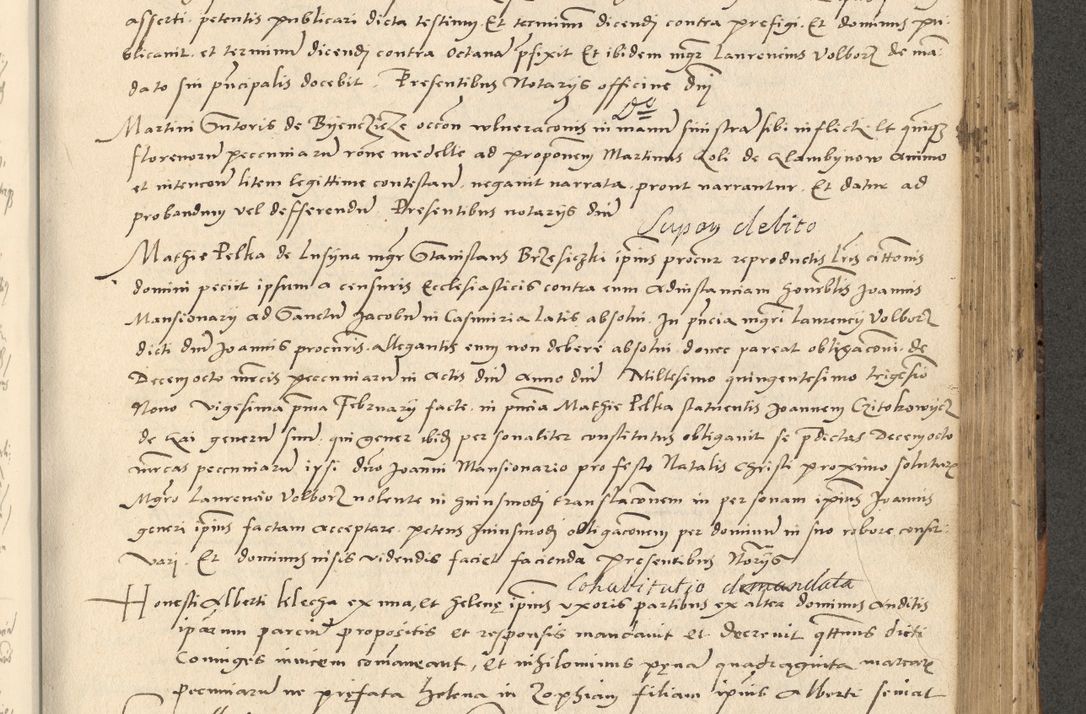 asserti petentis publicari dicta testium Et terminum dicendi contra prefigi. Et dominus pu-
blicavit. et terminum dicendi contra octavam pfixit Et ibidem mgr Laurencius Volborz de man-
dato sui pncipalis docebit. Presentibus Notarijs officine dnj
Martini Sutoris de occon vulneraconis in manu sinistra sibi inflicte Et quinqz
florenorum pecuniarum rone medelle ad proponem Martinus Koli de Klambynow Animo
et intencon litem legittime contestan. negavit narrata. prout narrantur. Et datur ad
probandum vel defferendum. Presentibus notarijs dnj
Lupay debito
Mathie Pelka de Lusyna mgr Stanislaus Brzesiczki ipius procur reproductis lris cittonis
domini peciit ipsum a censuris Ecclesiasticis contra eum Adinstanciam honrblis Joannis
Mansionarij ad Sanctum Jacobum in Casmiria latis absolui. In pncia mgri Laurencij Volborz
dicti dnj Joannis procuris. allegantis eum non debere absolui. donec pareat obligaconi. de
Decemocto mrcis pecuniarum in Actis dnj Anno dnj Miltesimo quingentesimo trigesio
Nono vigesima pma February facte. in pncia Mathie Pelka statuentis Joannem
de generum suum. qui gener ibid personaliter constitutus obligavit se pdictas Decemocto
mrcas pecuniarum ipsi dno Joanni Mansionario pro festo Natalis Christi proximo soluturum
Mgro Laurencio Volborz nolente in huiusmodi translaconem in personam ipius Joannis
generi ipius factam acceptare. petens huiusmodi obligaconem per dominum in suo robore conser-
vari. Et dominus visis videndis faciet facienda presentibus Norijs
Cohabitatio demandata
Honesti Alberti klecha ex vna, et helene ipius vxoris partibus ex altera dominus Auditis
iparum parcium propositis et responsis mandavit et decrevit qttnus dicti
Coniuges invicem comaneant, Et nihilominus pena quadraginta marcarum
pecuniarum ne prefata helena in Zophiam filiam ipius Alberti seviat